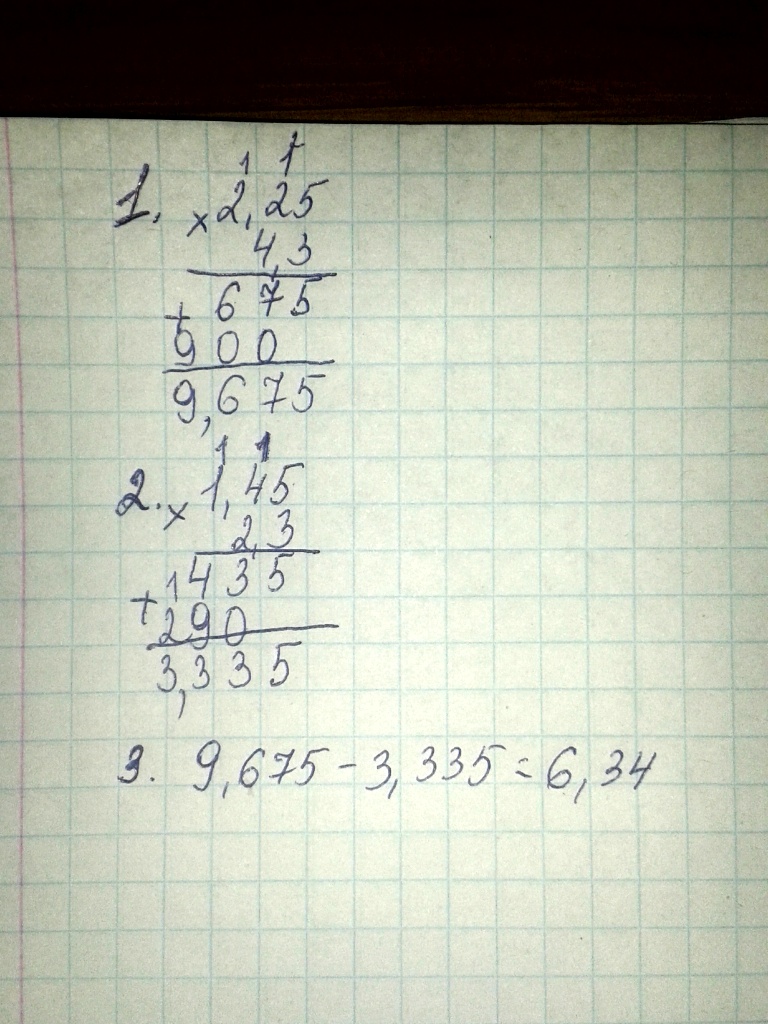 1 1
1. × 2,25
4,3
+ 675
900
9,675
1 1
2. × 1,45
2,3
+ 1435
290
3,335
3. 9,675 - 3,335 = 6,34